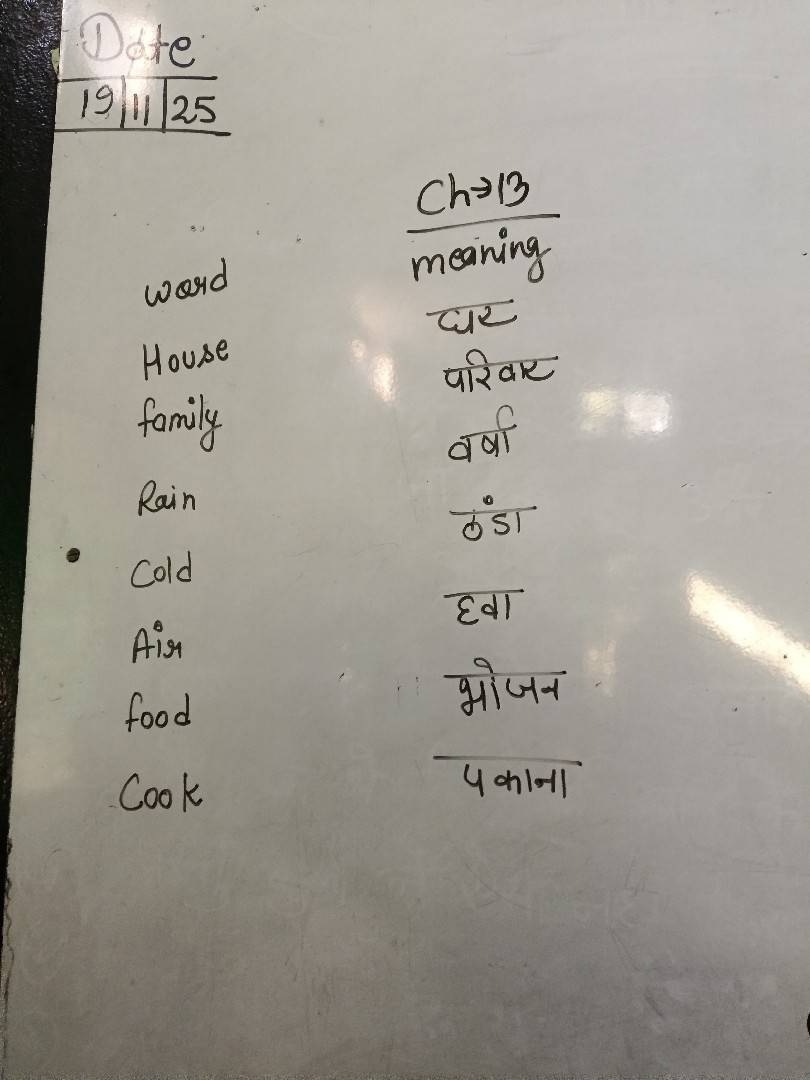 Date
19|11|25
Ch→13
word meaning
House घर
family परिवार
Rain वर्षा
Cold ठंडा
Air हवा
food भोजन
Cook पकाना